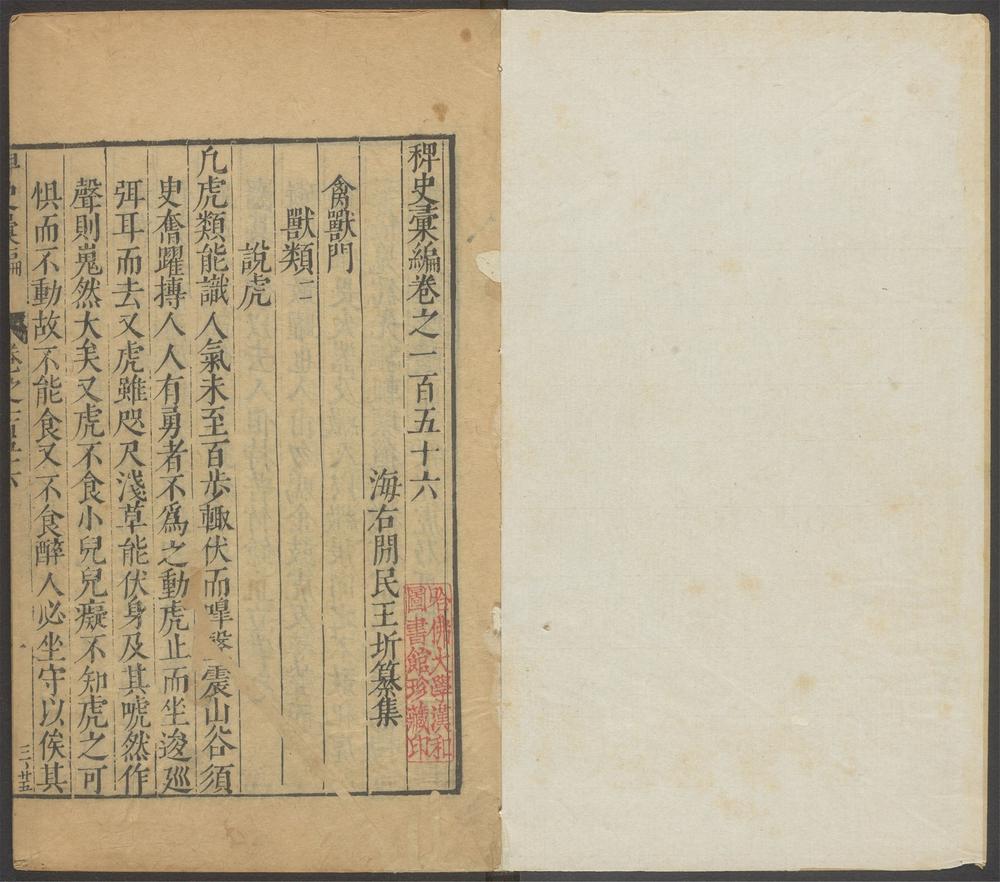 稗史彙編卷之一百五十六
海右閒民王圻纂集
禽獸門
獸類二
說虎
凡虎類能識人氣未至百步輙伏而嘷聲震山谷須
史奮躍搏人人有勇者不爲之動虎止而坐逡廵
弭耳而去又虎雖咫尺淺草能伏身及其唬然作
聲則嵬然大矣又虎不食小兒兒癡不知虎之可
懼而不動故不能食又不食醉人必坐守以俟其
史彙編
卷之一百五十六
一
三ノ廿五
哈佛大學漢和
圖書館珍藏印